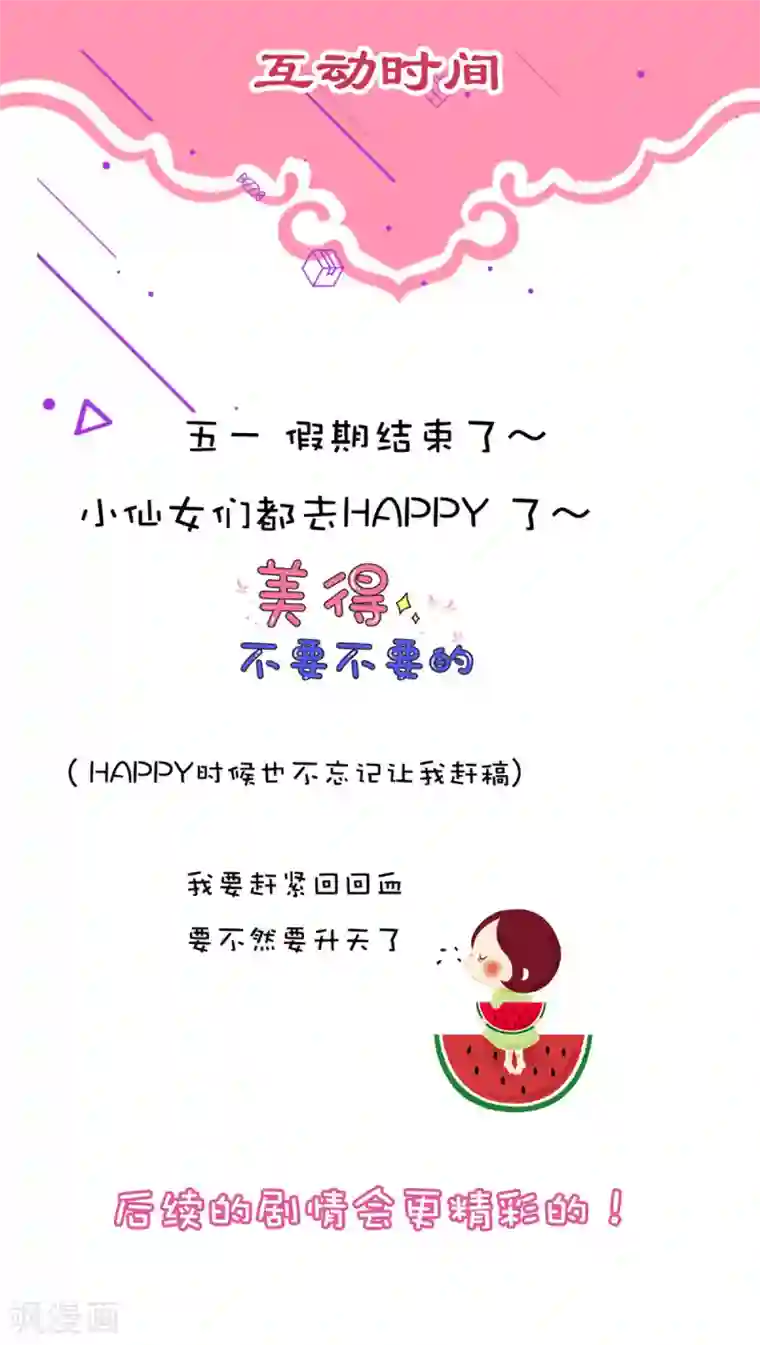 互动时间
五一 假期结束了~
小仙女们都去HAPPY 了~
美得
不要不要的
(HAPPY时候也不忘记让我赶稿)
我要赶紧回回血
要不然要升天了
后续的剧情会更精彩的!
飒漫画